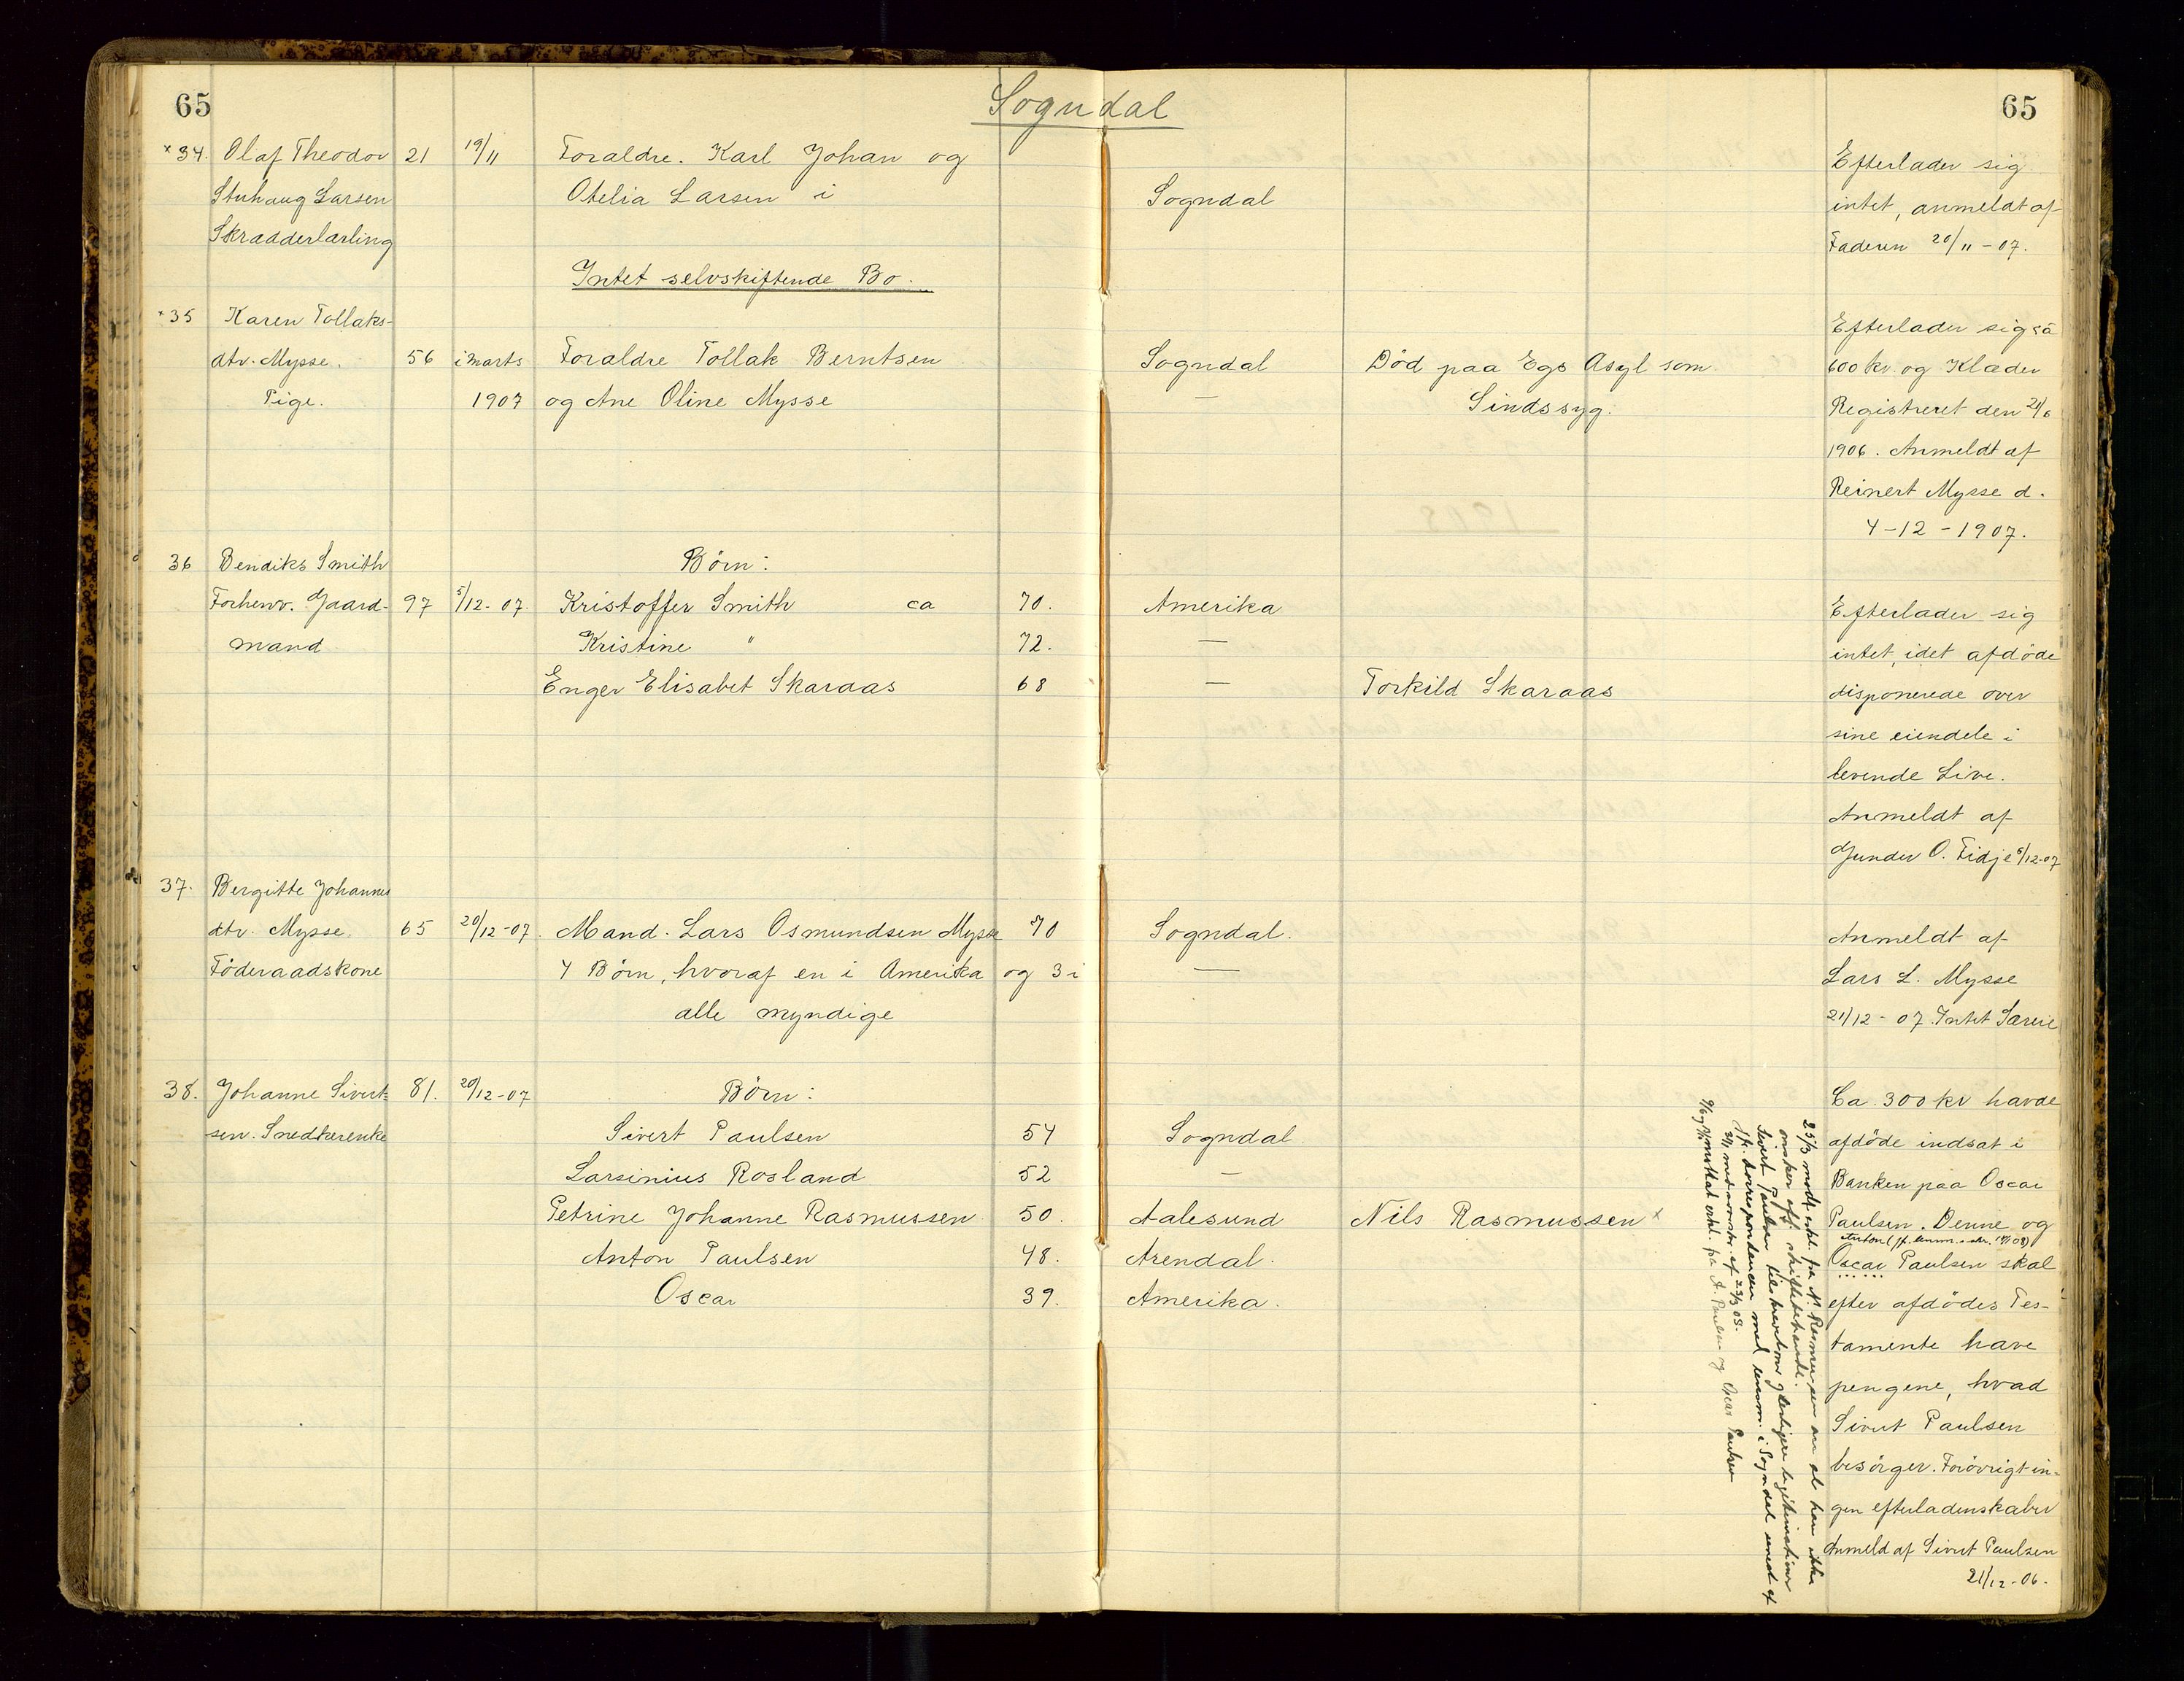 65 Sogndal 65
×34. Olaf Theodor 21 19/11 Forældre. Karl Johan og Efterlader sig
Stuhaug Larsen Otelia Larsen i Sogndal intet, anmeldt af
Skrædderlærling Faderen 20/11 - 07.
Intet selvskiftende Bo.
×35 Karen Tollaks- Efterlader sig ca
dtr. Mysse. 56 i Marts Forældre Tollak Berntsen Sogndal Død paa Egs Asyl som 600 kr. og Klæder
Pige. 1907 og Ane Oline Mysse — Sindssyg. Registreret den 21/6
1906. Anmeldt af
Reinert Mysse d.
4-12-1907.
36 Bendiks Smith Børn:
Forhenv. Gaard- 97 5/12-07. Kristoffer Smith ca 70. Amerika Efterlader sig
mand Kristine " 72. — intet, idet afdöde
Enger Elisabet Skaraas 68 — Torkild Skaraas disponerede over
sine eiendele i
levende Live.
Anmeldt af
Gunder O. Fidje 5/12-07
37. Bergitte Johannes
dtr. Mysse. 65 20/12-07. Mand. Lars Osmundsen Mysse 70 Sogndal. Anmeldt af
Föderaadskone 4 Börn, hvoraf en i Amerika og 3 i — Lars L. Mysse
alle myndige 21/12-07. Intet Særeie
38. Johanne Sivert- 81. 20/12-07 Börn: Ca. 300 kr havde
sen. Snedkerenke Sivert Paulsen 54 Sogndal afdöde indsat i
Larsinius Rosland 52 — Banken paa Oscar
Petrine Johanne Rasmussen 50. Aalesund Nils Rasmussen × Paulsen. Denne og
Anton
Anton Paulsen 48. Arendal. Oscar Paulsen skal
Oscar 39. Amerika. efter afdödes Tes-
tamente have
pengene, hvad
Sivert Paulsen
besörger. Forövrigt in-
gen efterladenskaber
Anmeld af Sivert Paulsen
21/12-06.
25/3 modt. erkl. fra N. Rasmussen om at han ikke
ønsker off. skiftebehandl.
Sivert Paulsen
Jfr. korrespondencen med lensm. i Sogndal
mottat erkl. fra A. Paulsen og Oscar Paulsen